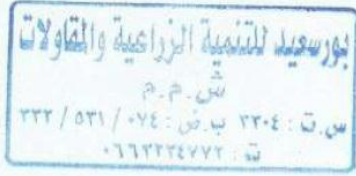 بورسعيد للتنمية الزراعية والمقاولات
ش.م.م
س.ت : ٣٣٠٤ ب.ض : ٠٧٤ / ٥٣١ / ٣٣٣
ت : ٠٦٦٣٣٣٤٧٧٣